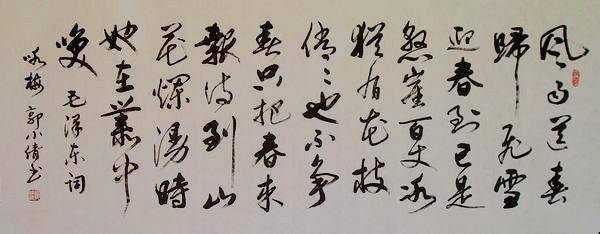 风雨送春
歸飞雪
迎春到已是
悬崖百丈冰
犹有花枝
俏々也不争
春只把春来
報待到山
花爛漫時
她在叢中
笑 毛泽东词
咏梅 郭小倩书